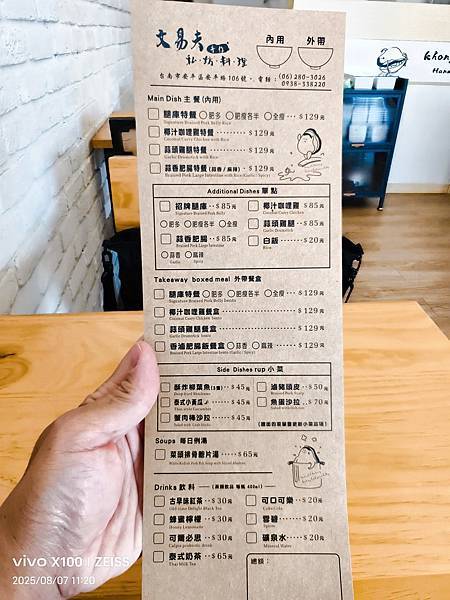 艾易夫 手作
私·坊·料·理
內用 外帶
台南市安平區安平路106號。電話:(06)280-3026
0938-338220
Main Dish 主餐(內用)
腿庫特餐 ○肥多 ○肥瘦各半 ○全瘦 $129元
Signature Braised Pork Belly Rice
椰汁咖哩雞特餐 $129元
Coconut Curry Chicken with Rice
蒜頭雞腿特餐 $129元
Garlic Drumstick with Rice
蒜香肥腸特餐(蒜香/麻辣) $129元
Braised Pork Large Intestine with Rice (Garlic / Spicy)
Additional Dishes 單點
招牌腿庫 $85元
Signature Braised Pork Belly
○肥多 ○肥瘦各半 ○全瘦
蒜香肥腸 $85元
○蒜香 ○麻辣
Garlic Spicy
椰汁咖哩雞 $85元
Coconut Curry Chicken
蒜頭雞腿 $85元
Garlic Drumstick
白飯 $20元
Rice
Takeaway boxed meal 外帶餐盒
腿庫特餐 ○肥多 ○肥瘦各半 ○全瘦 $129元
Signature Braised Pork Belly bento
椰汁咖哩雞餐盒 $129元
Coconut Curry Chicken bento
蒜頭雞腿餐盒 $129元
Garlic Drumstick bento
香滷肥腸飯餐盒 ○蒜香 ○麻辣 $129元
Braised Pork Large Intestine bento (Garlic / Spicy)
Side Dishes rup 小菜
酥炸柳葉魚(3隻) $45元
Deep-fried Shishamo
泰式小黃瓜 $45元
Thai-style Cucumber
蟹肉棒沙拉 $45元
Salad with crab sticks
滷豬頭皮 $50元
Braised Pork Scalp
魚蛋沙拉 $70元
Salad with fish roe
Soups 每日例湯
菜頭排骨鮑片湯 $65元
White Radish Pork Rib Soup with Sliced Abalone
Drinks 飲料 —(茶類飲品 每瓶 400ml)
古早味紅茶 $30元
Old-time Delight Black Tea
蜂蜜檸檬 $30元
Honey Lemonade
可爾必思 $30元
Calpis probiotic drink
泰式奶茶 $65元
Thai Milk Tea
可口可樂 $20元
Coke Cola
雪碧 $20元
Sprite
礦泉水 $20元
Mineral Water
總額:
vivo X100 | ZEISS
2025/08/07 11:20